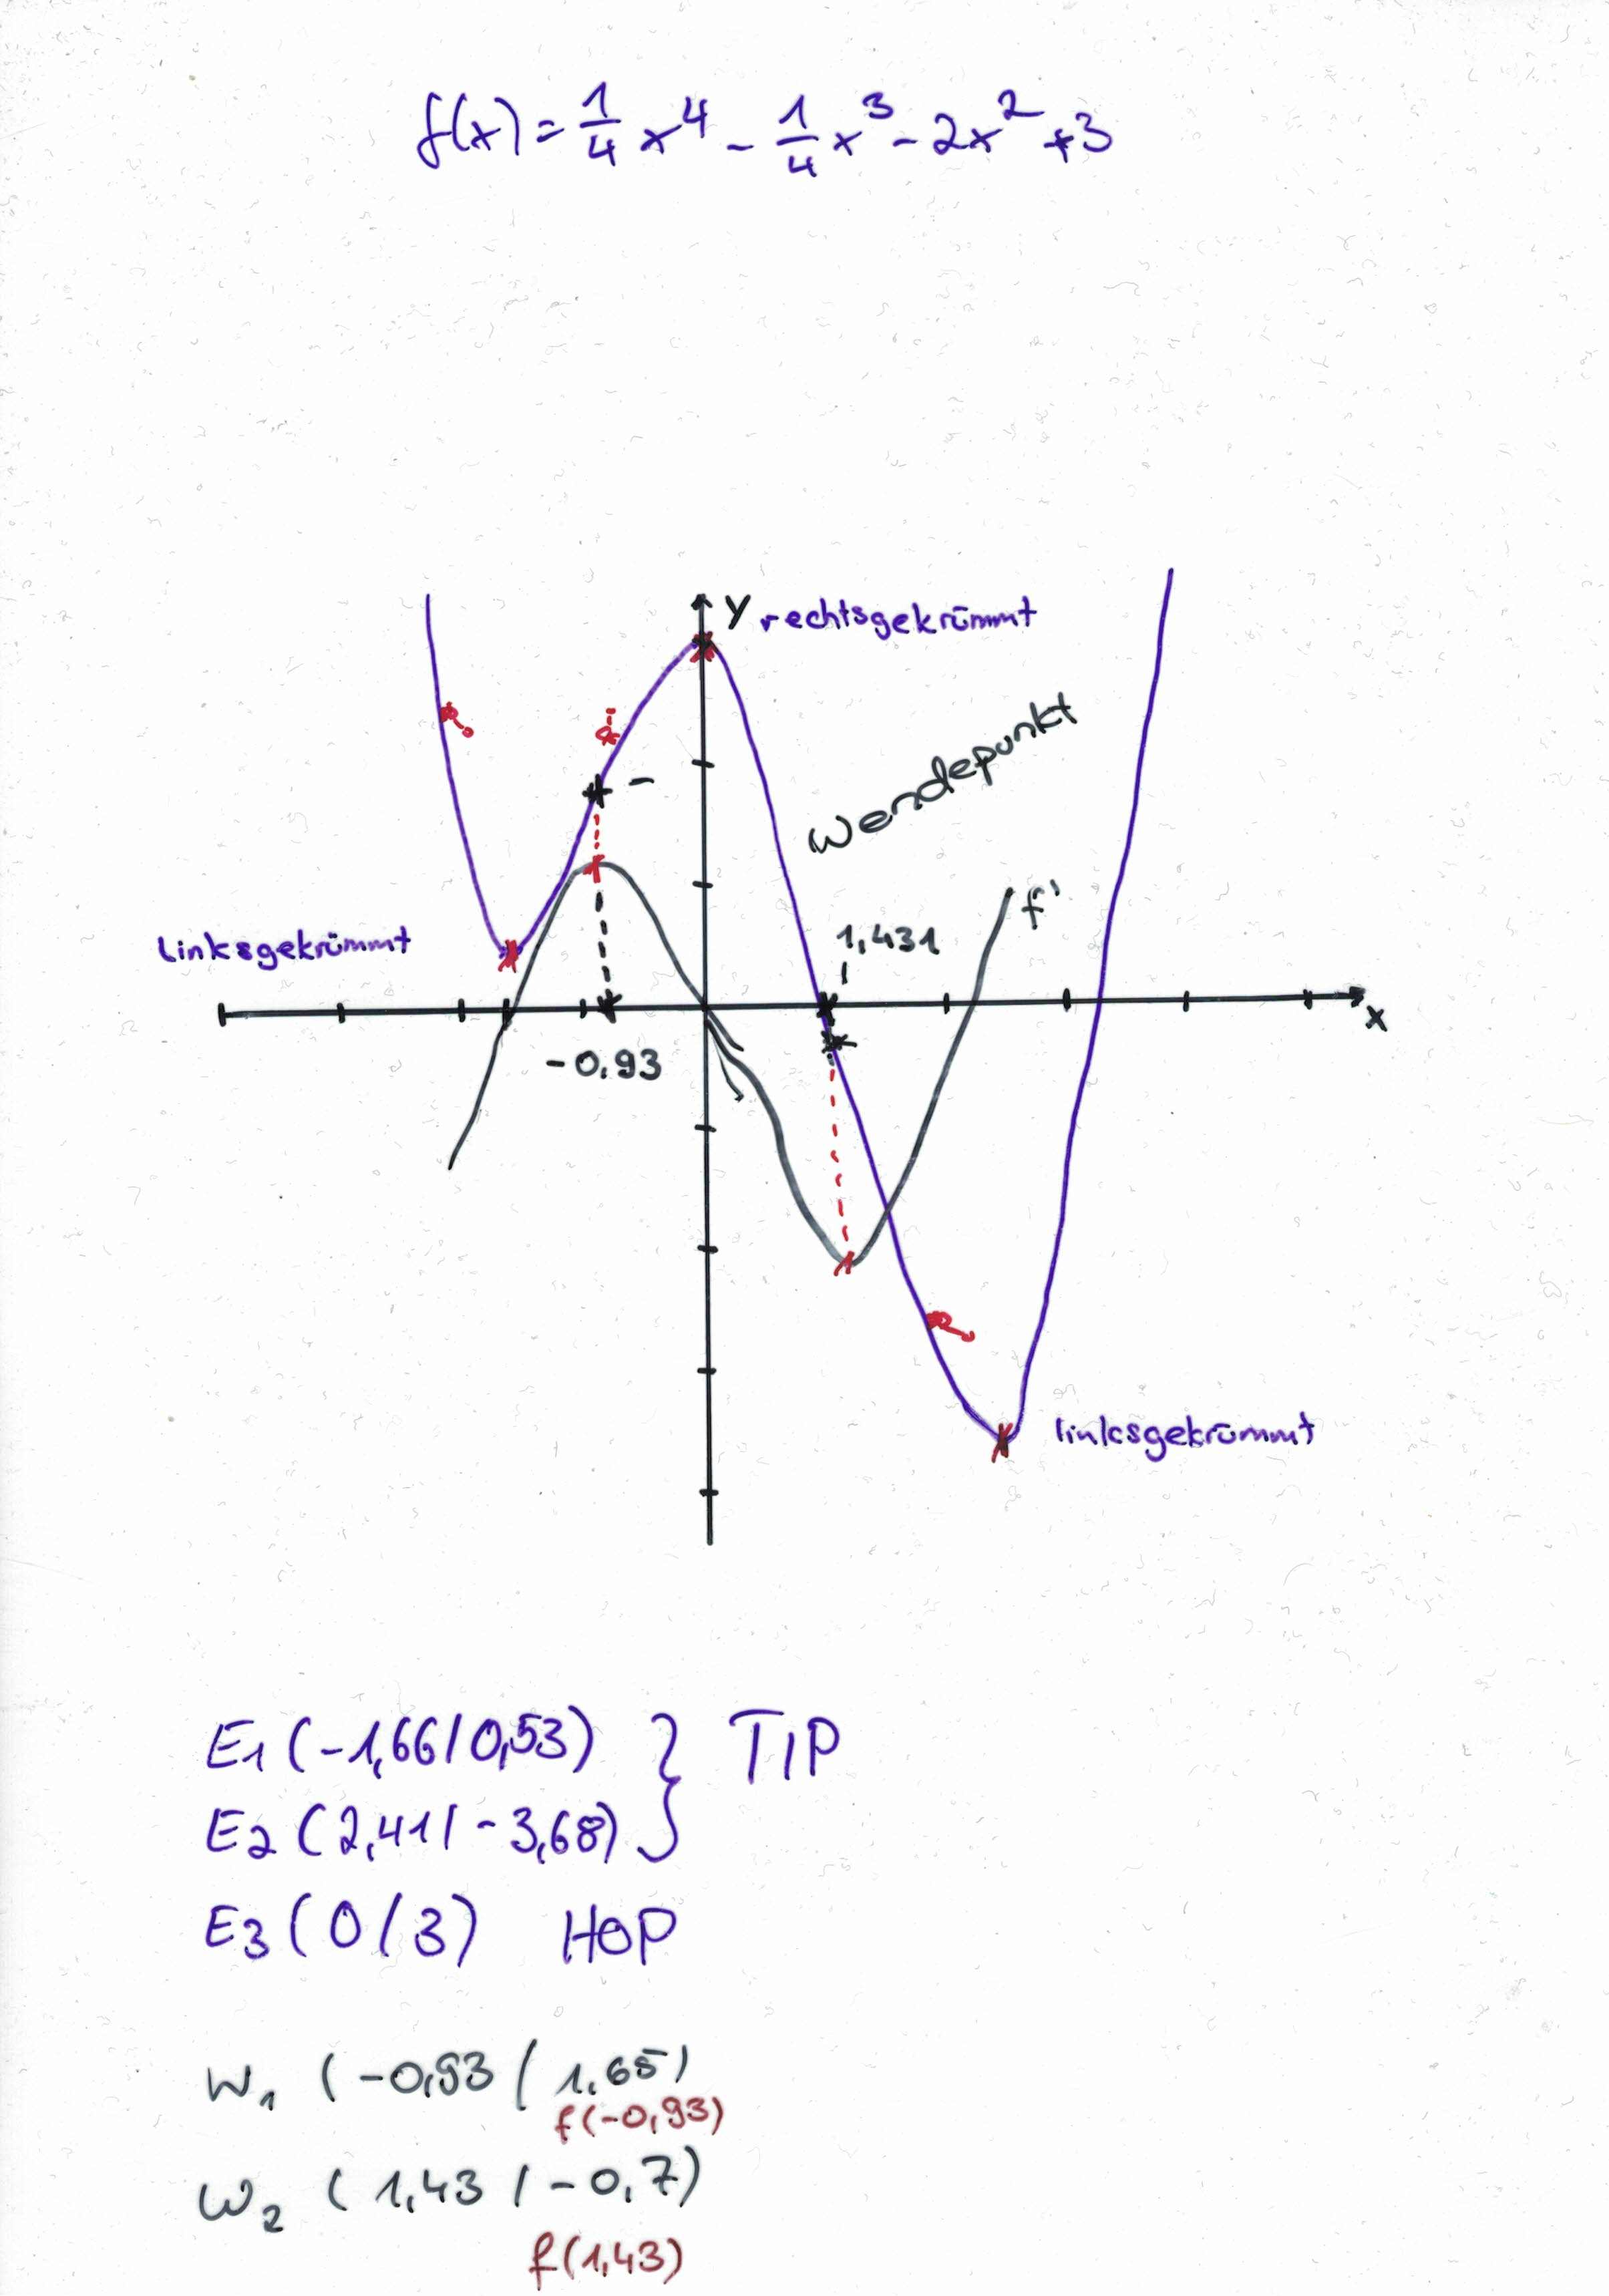 f(x) = 1/4 x⁴ - 1/4 x³ - 2x² + 3
y
rechtsgekrümmt
Wendepunkt
f'
1,431
linksgekrümmt
x
-0,93
linksgekrümmt
E1 (-1,66/0,53) } TIP
E2 (2,41/-3,68)
E3 (0/3) HOP
W1 (-0,93/1,65)
f(-0,93)
W2 (1,43/-0,7)
f(1,43)